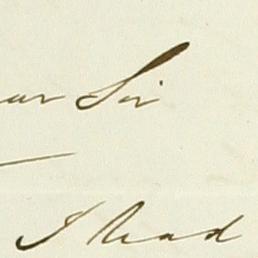 ar Sir
I had